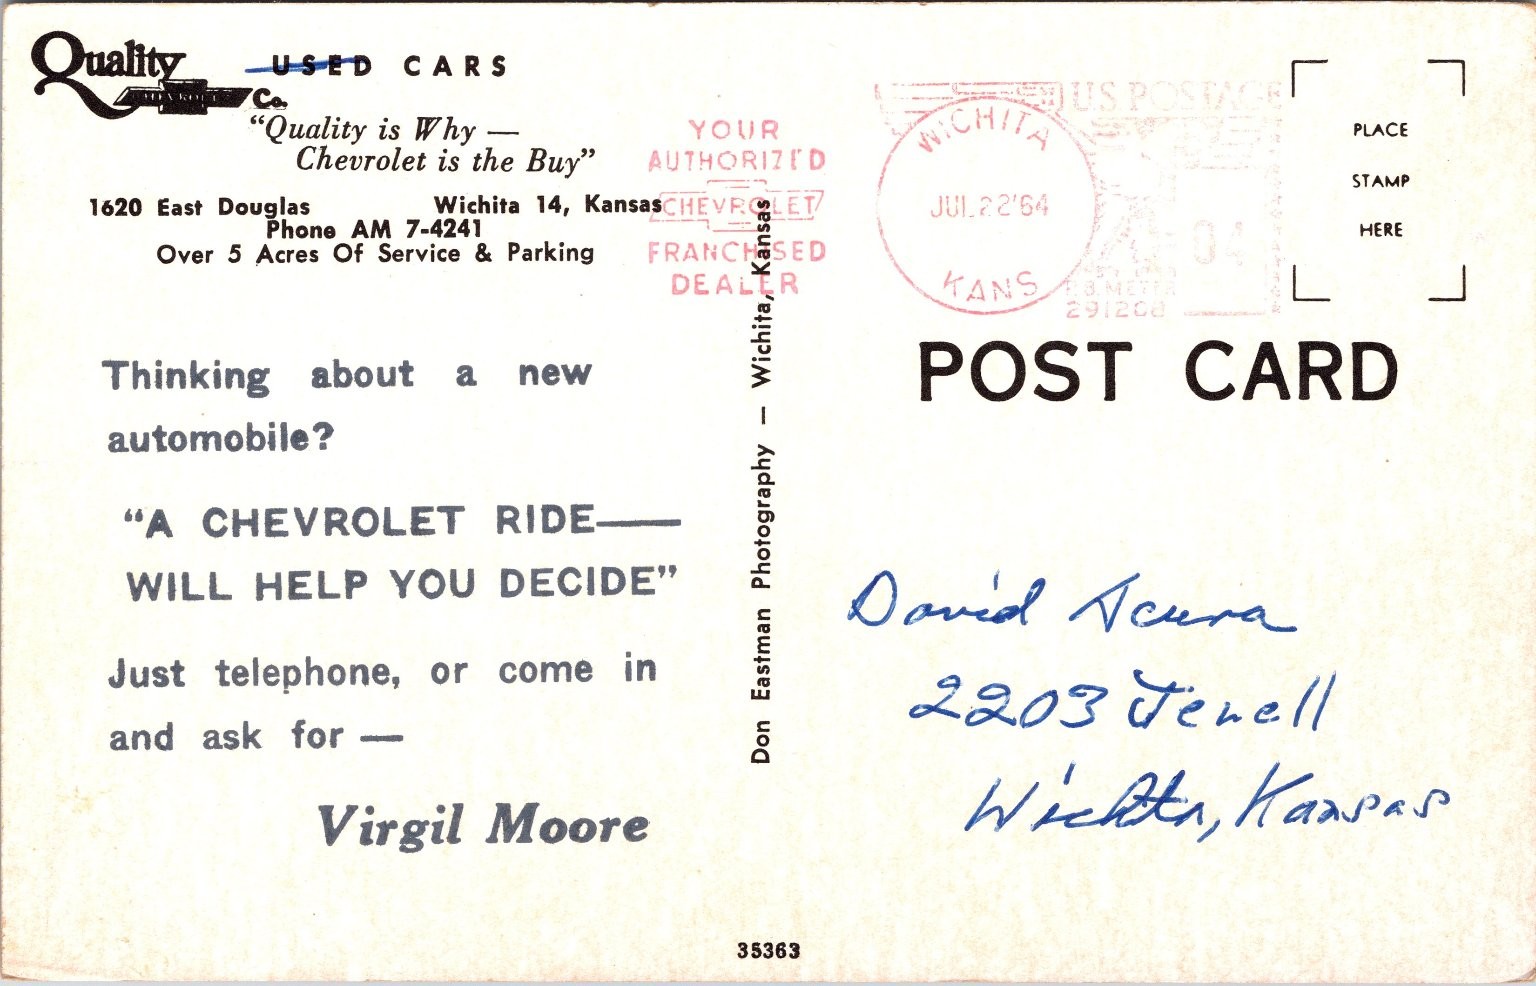 Quality USED CARS
CHEVROLET Co.
"Quality is Why —
Chevrolet is the Buy"
1620 East Douglas Wichita 14, Kansas
Phone AM 7-4241
Over 5 Acres Of Service & Parking
Thinking about a new
automobile?
"A CHEVROLET RIDE—
WILL HELP YOU DECIDE"
Just telephone, or come in
and ask for —
Virgil Moore
Don Eastman Photography — Wichita, Kansas
35363
YOUR
AUTHORIZED
CHEVROLET
FRANCHISED
DEALER
WICHITA
JUL 22 '64
KANS
U.S. POSTAGE
04
P.B. METER
291208
PLACE
STAMP
HERE
POST CARD
David Acura
2203 Jewell
Wichita, Kansas